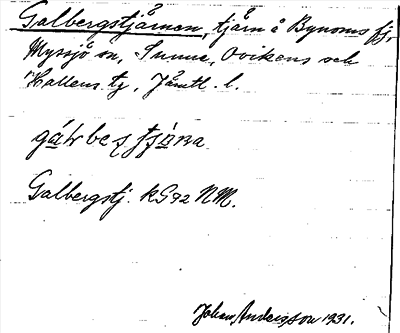 Galbergstjärnen, tjärn å Bynoms fj,
Myssjö sn, Sunne, Ovikens och
Hallens tg, Jämtl. l.
Galbergstj. KG92 NM.
Johan Andersson 1931.